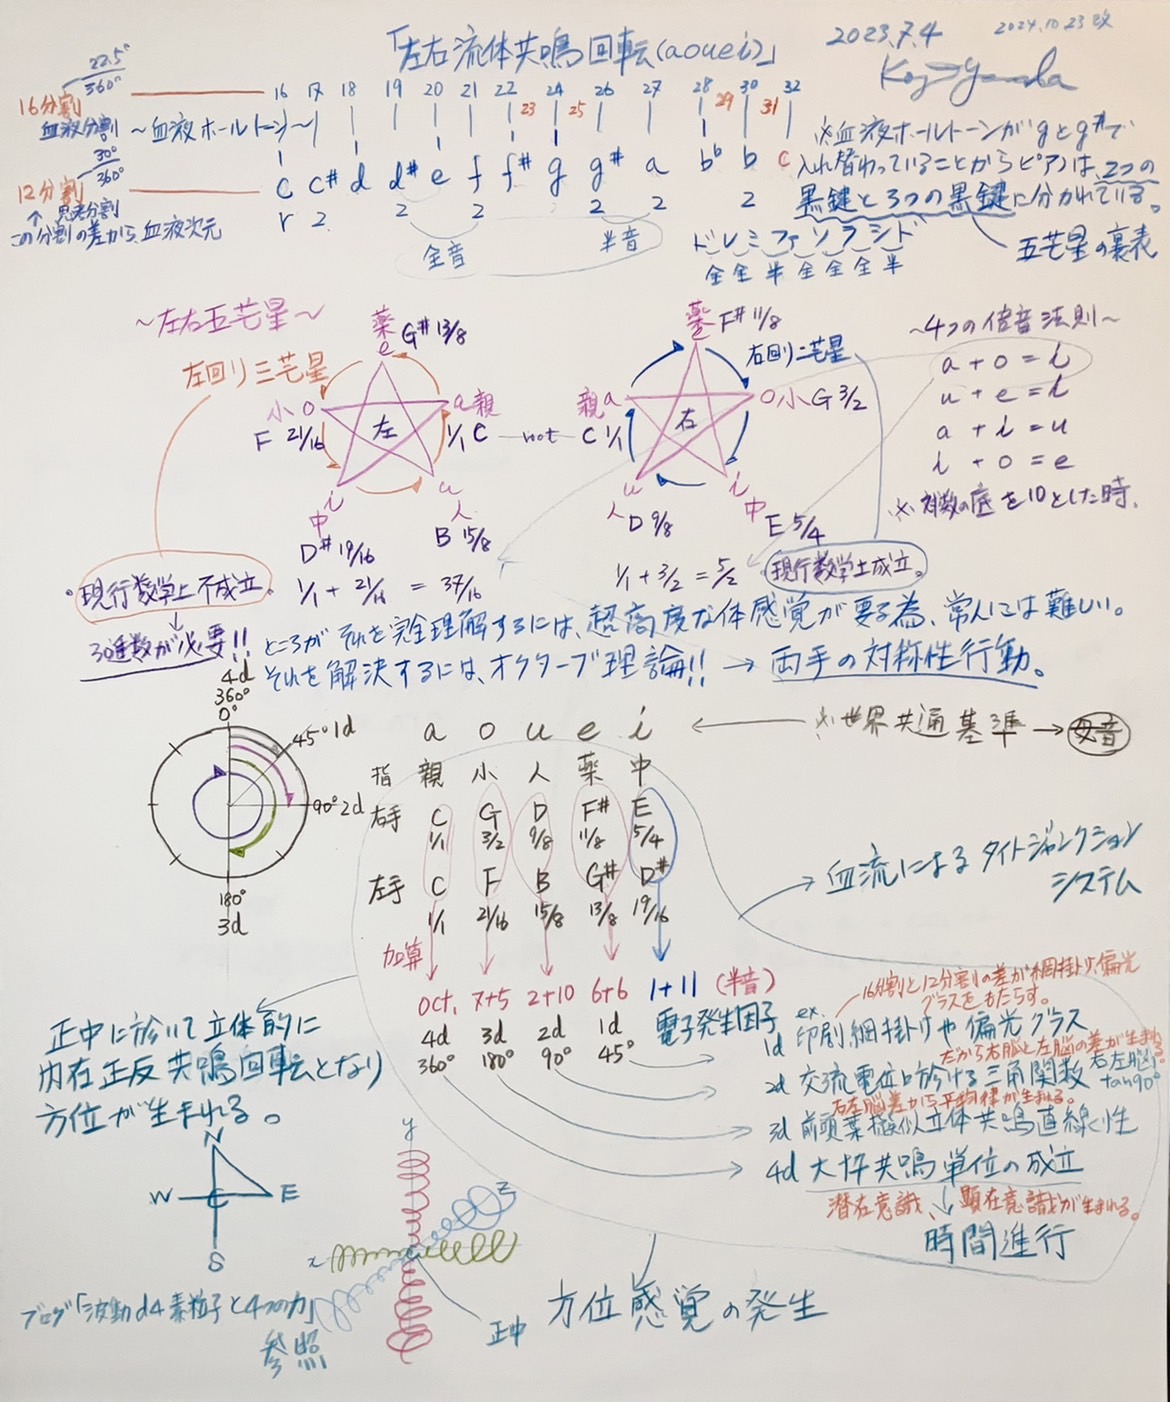 「左右流体共鳴回転(aouei)」
2023.7.4
2024.10.23改
22.5°
360°
16分割
血液分割
〜血液ホールトーン〜
16 17 18 19 20 21 22 23 24 25 26 27 28 29 30 31 32
30°
360°
12分割
↑ 思考分割
この分割の差から、血液次元
c c# d d# e f f# g g# a b♭ b c
r 2 2 2 2 2 2
全音
半音
※血液ホールトーンがgとg#で
入れ替わっていることからピアノは、2つの
黒鍵と3つの黒鍵に分かれている。
五芒星の裏表
ドレミファソラシド
全全半全全全半
〜左右五芒星〜
左回り三芒星
薬 G# 13/8
e
小 o
F 21/16
a 親
1/1 C
左
i
中
D# 19/16
u
人
B 15/8
not
薬 F# 11/8
e
右回り二芒星
親 a
C 1/1
o 小 G 3/2
右
u
人 D 9/8
i
中
E 5/4
〜4つの倍音法則〜
a + o = i
u + e = i
a + i = u
i + o = e
※対数の底を10とした時.
・現行数学上不成立。
1/1 + 21/16 = 37/16
1/1 + 3/2 = 5/2
・現行数学上成立。
30進数が必要!!
ところがそれを完全理解するには、超高度な体感覚が要る為、常人には難しい。
それを解決するには、オクターブ理論!! → 両手の対称性行動。
4d
360°
0°
45° 1d
90° 2d
180°
3d
a o u e i
※世界共通基準 → 母音
指 親 小 人 薬 中
右手 C G D F# E
1/1 3/2 9/8 11/8 5/4
左手 C F B G# D#
1/1 21/16 15/8 13/8 19/16
加算
oct, 7+5 2+10 6+6 1+11 (半音)
4d 3d 2d 1d 電子発生因子
360° 180° 90° 45°
血流によるタイトジャンクション
システム
16分割と12分割の差が網掛け、偏光
グラスをもたらす。
ex.
1d 印刷網掛けや偏光グラス
だから右脳と左脳の差が生まれる。
2d 交流電位に於ける三角関数
右左脳
tan90°
右左脳差から平均律が生まれる。
3d 前頭葉擬似立体共鳴直線性
4d 大枠共鳴単位の成立
潜在意識、顕在意識が生まれる。
時間進行
正中に於いて立体的に
内在正反共鳴回転となり
方位が生まれる。
N
W E
S
y
z
x
正中
方位感覚の発生
ブログ「波動d4素粒子と4つの力」
参照